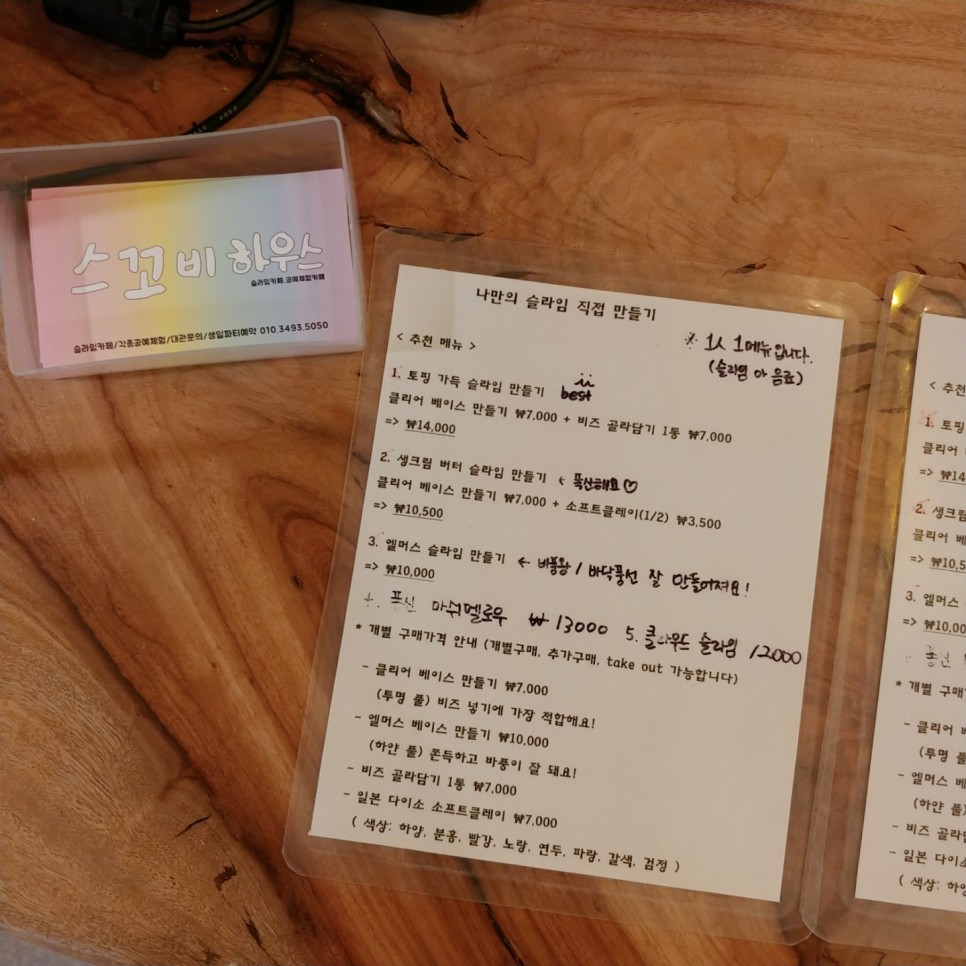 스꼬비 하우스
슬라임카페, 공예체험카페
슬라임카페/각종공예체험/대관문의/생일파티예약 010.3493.5050
나만의 슬라임 직접 만들기
※ 1人 1메뉴입니다.
(슬라임 or 음료)
< 추천 메뉴 >
1. 토핑 가득 슬라임 만들기 best
클리어 베이스 만들기 ₩7,000 + 비즈 골라담기 1통 ₩7,000
=> ₩14,000
2. 생크림 버터 슬라임 만들기 ← 폭신해요♡
클리어 베이스 만들기 ₩7,000 + 소프트클레이(1/2) ₩3,500
=> ₩10,500
3. 엘머스 슬라임 만들기 ← 바풍왕 / 바닥풍선 잘 만들어져요!
=> ₩10,000
4. 폭신 마쉬멜로우 ₩13000 5. 클라우드 슬라임 12000
* 개별 구매가격 안내 (개별구매, 추가구매, take out 가능합니다)
- 클리어 베이스 만들기 ₩7,000
(투명 풀) 비즈 넣기에 가장 적합해요!
- 엘머스 베이스 만들기 ₩10,000
(하얀 풀) 쫀득하고 바풍이 잘 돼요!
- 비즈 골라담기 1통 ₩7,000
- 일본 다이소 소프트클레이 ₩7,000
( 색상: 하양, 분홍, 빨강, 노랑, 연두, 파랑, 갈색, 검정 )
< 추천
1. 토핑
클리어
=> ₩14
2. 생크림
클리어 베
=> ₩10,5
3. 엘머스
=> ₩10,00
* 개별 구매
- 클리어 베
(투명 풀
- 엘머스 베
(하얀 풀)
- 비즈 골라담
- 일본 다이소
( 색상: 하양